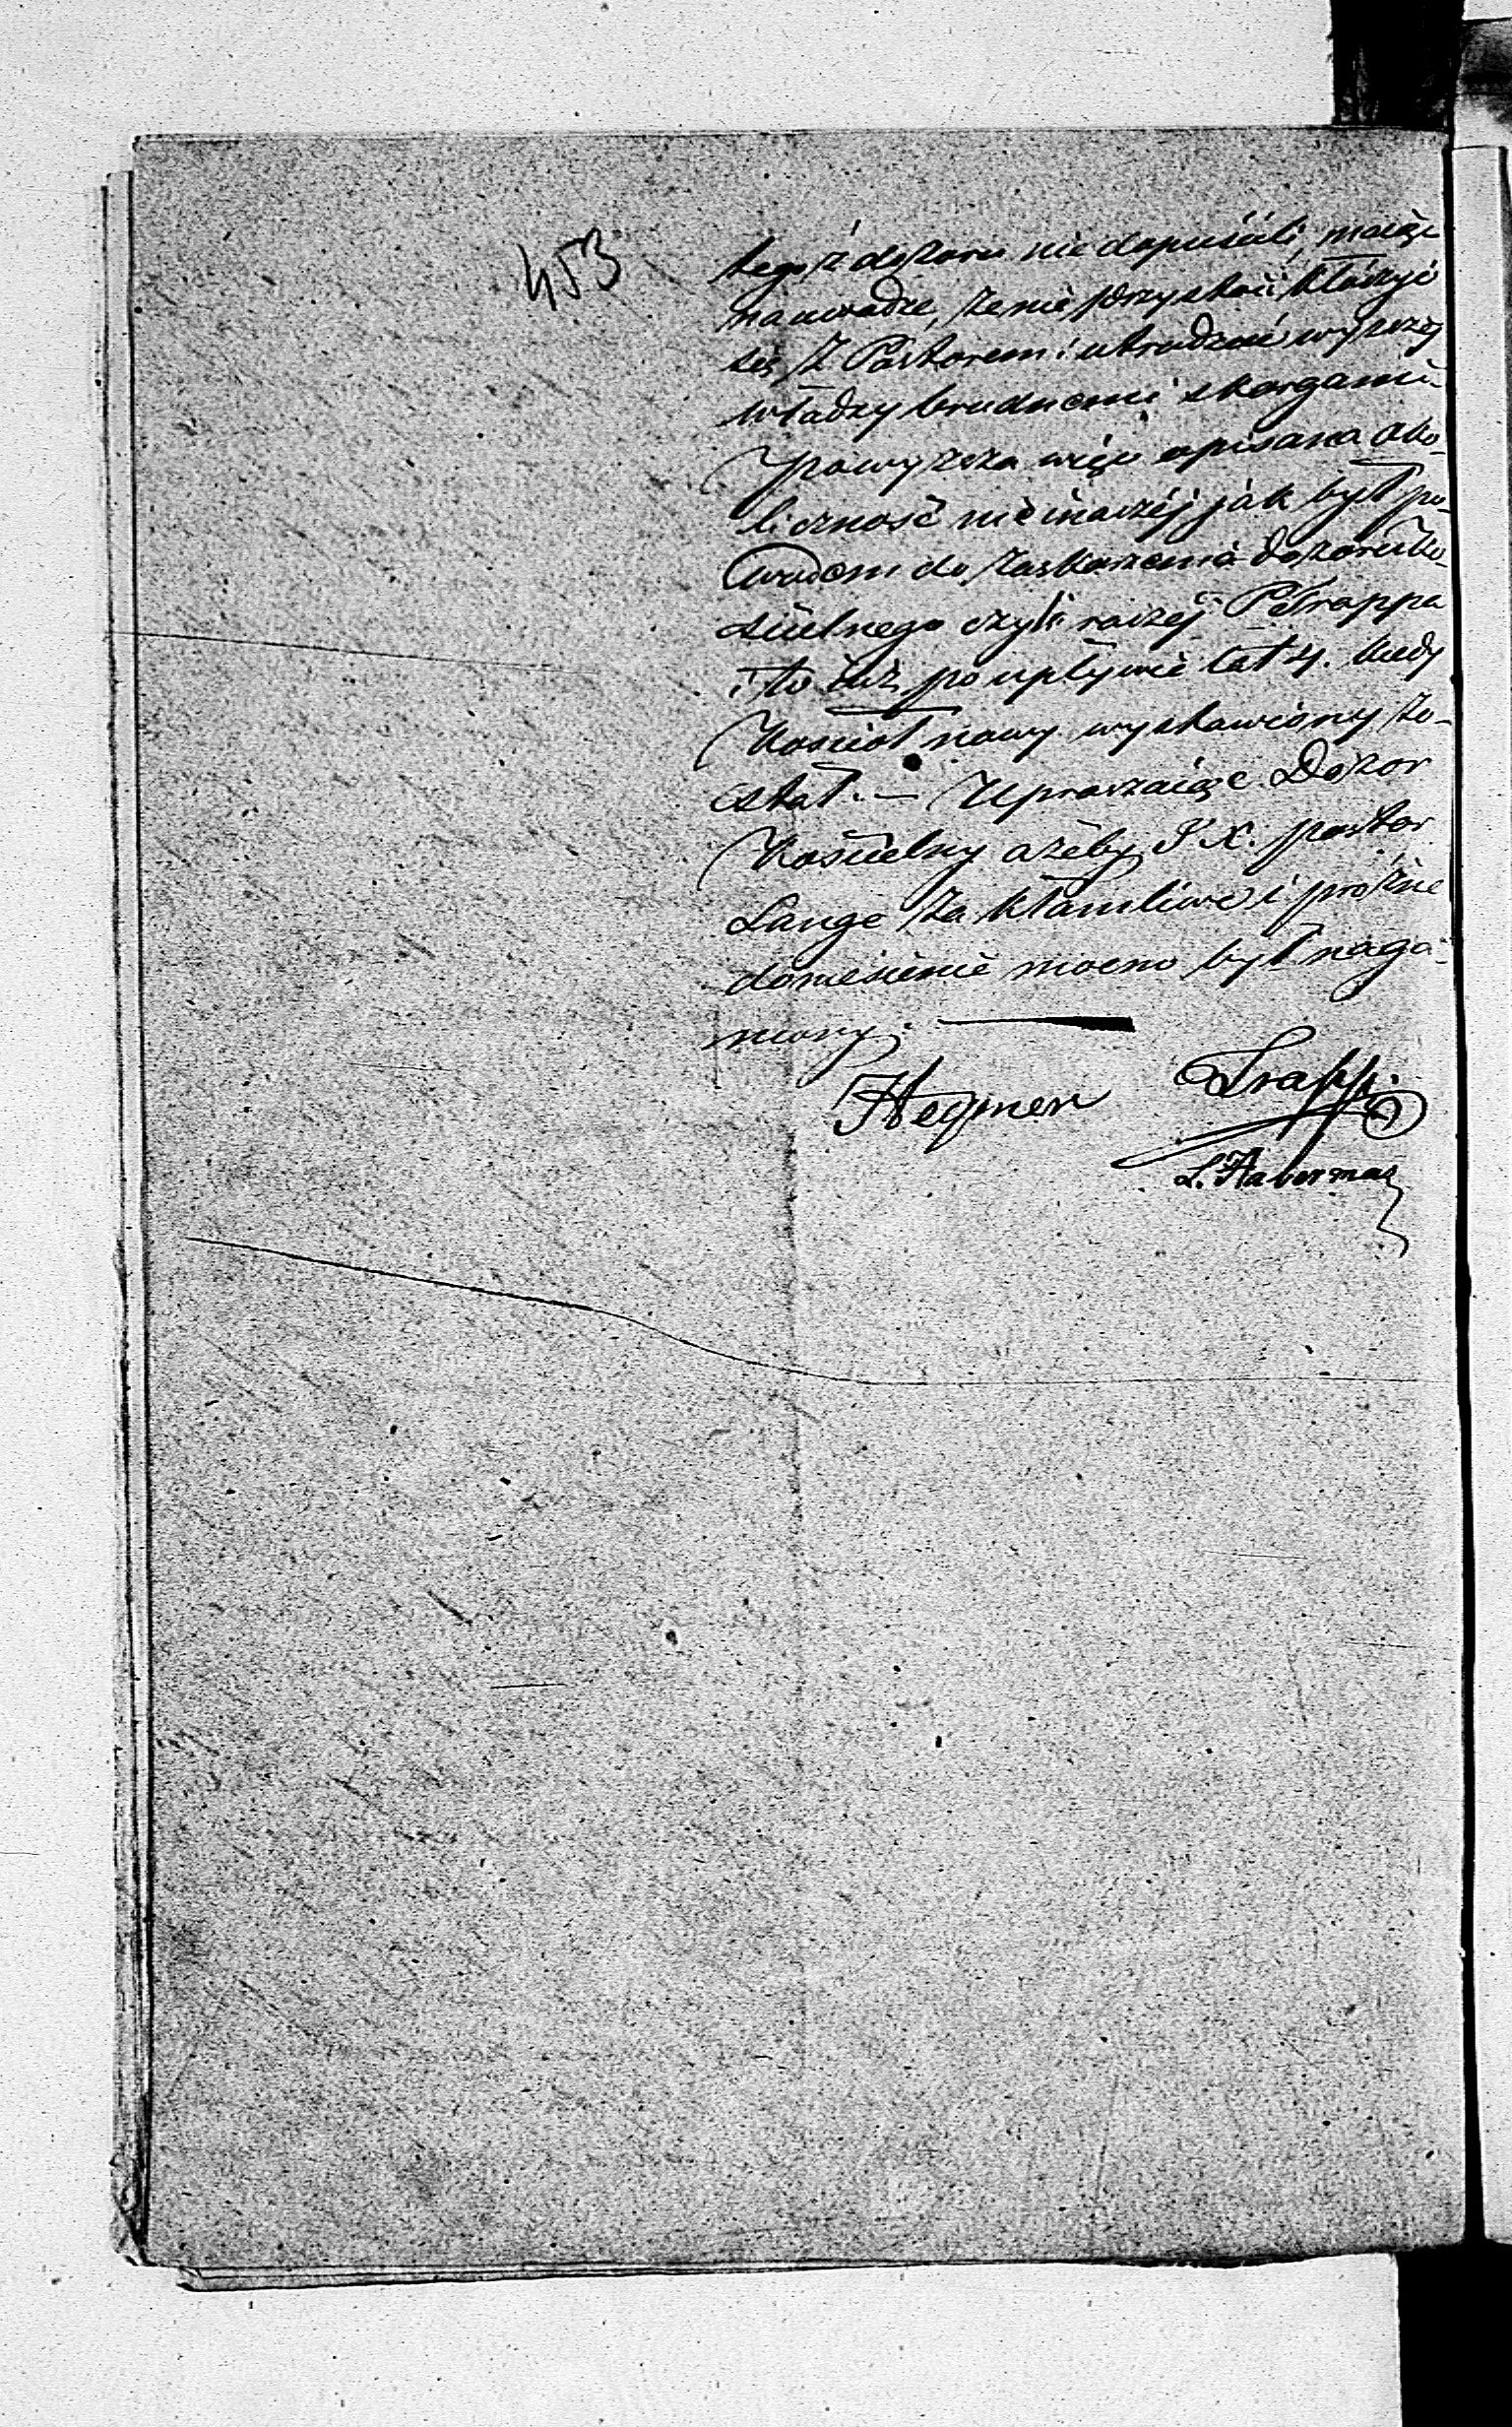 453
tegoż dozoru nie dopuścili, maiąc
na uwadze, że nie przystoi kłócyć
się z Pastorem i utrudzać wyższey
Władzy brudnemi skargami.
Powyższa więc opisana oko-
liczność nieinaczéj jak był po-
wodem do zaskarzenia dozoru Ko-
ścielnego czyli raczéj P Trappa
i to iuż po upływie lat 4. kiedy
Kościoł nowy wystawiony zo-
stał. — Upraszaiąc Dozor
Kościelny ażeby X. pastor
Lange za kłamliwe i prożne
doniesienie mocno był naga-
niony. —
Hegmer Trapp.
L. Haberman